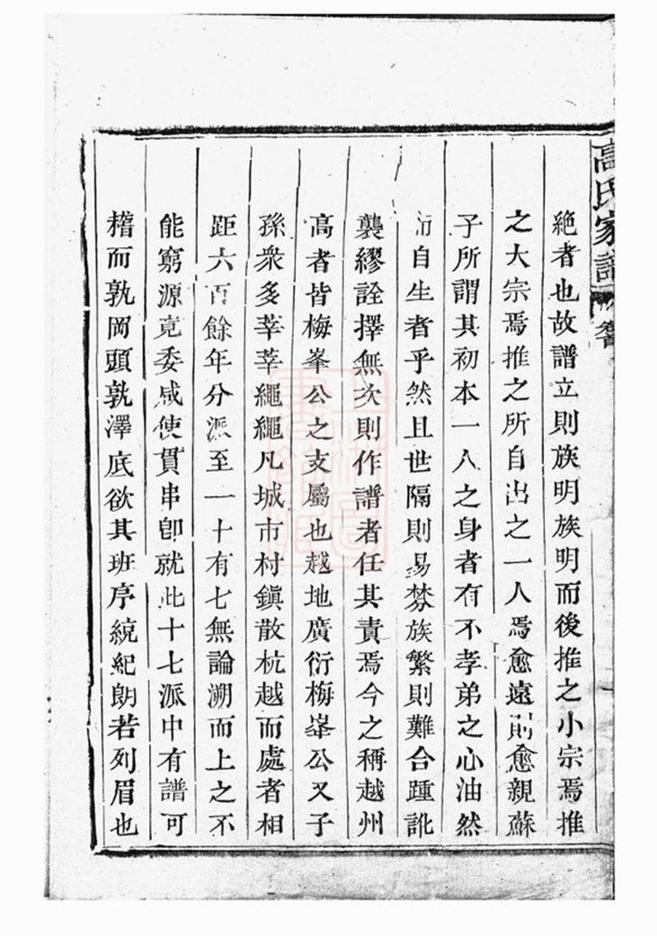 高氏家譜
絶者也故譜立則族明族明而後推之小宗焉推
之大宗焉推之所自出之一人焉愈遠則愈親蘇
子所謂其初本一人之身者有不孝弟之心油然
而自生者乎然且世隔則易棼族繁則難合踵訛
襲繆詮擇無次則作譜者任其責焉今之稱越州
高者皆梅峯公之支屬也越地廣衍梅峯公又子
孫衆多莘莘繩繩凡城市村鎭散杭越而處者相
距六百餘年分派至一十有七無論溯而上之不
能窮源竟委咸使貫串卽就此十七派中有譜可
稽而孰岡頭孰澤底欲其班序統紀朗若列眉也